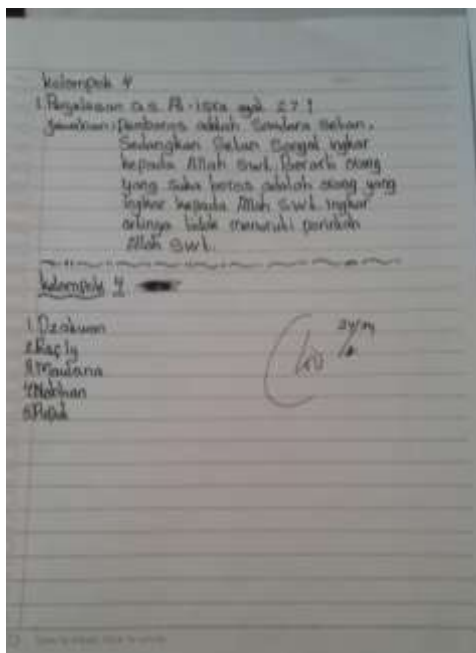 kelompok 4
1. Penjelasan Q.S. Al-isra ayat 27!
Jawaban: Pemboros adalah Saudara Setan.
Sedangkan Setan Sangat ingkar
kepada Allah Swt. Berarti orang
yang Suka boros adalah orang yang
ingkar kepada Allah Swt. ingkar
artinya tidak menuruti perintah
Allah Swt.
kelompok 4
1. Dzakwan
2. Rafly
3. Maulana
4. Nabhan
5.
100